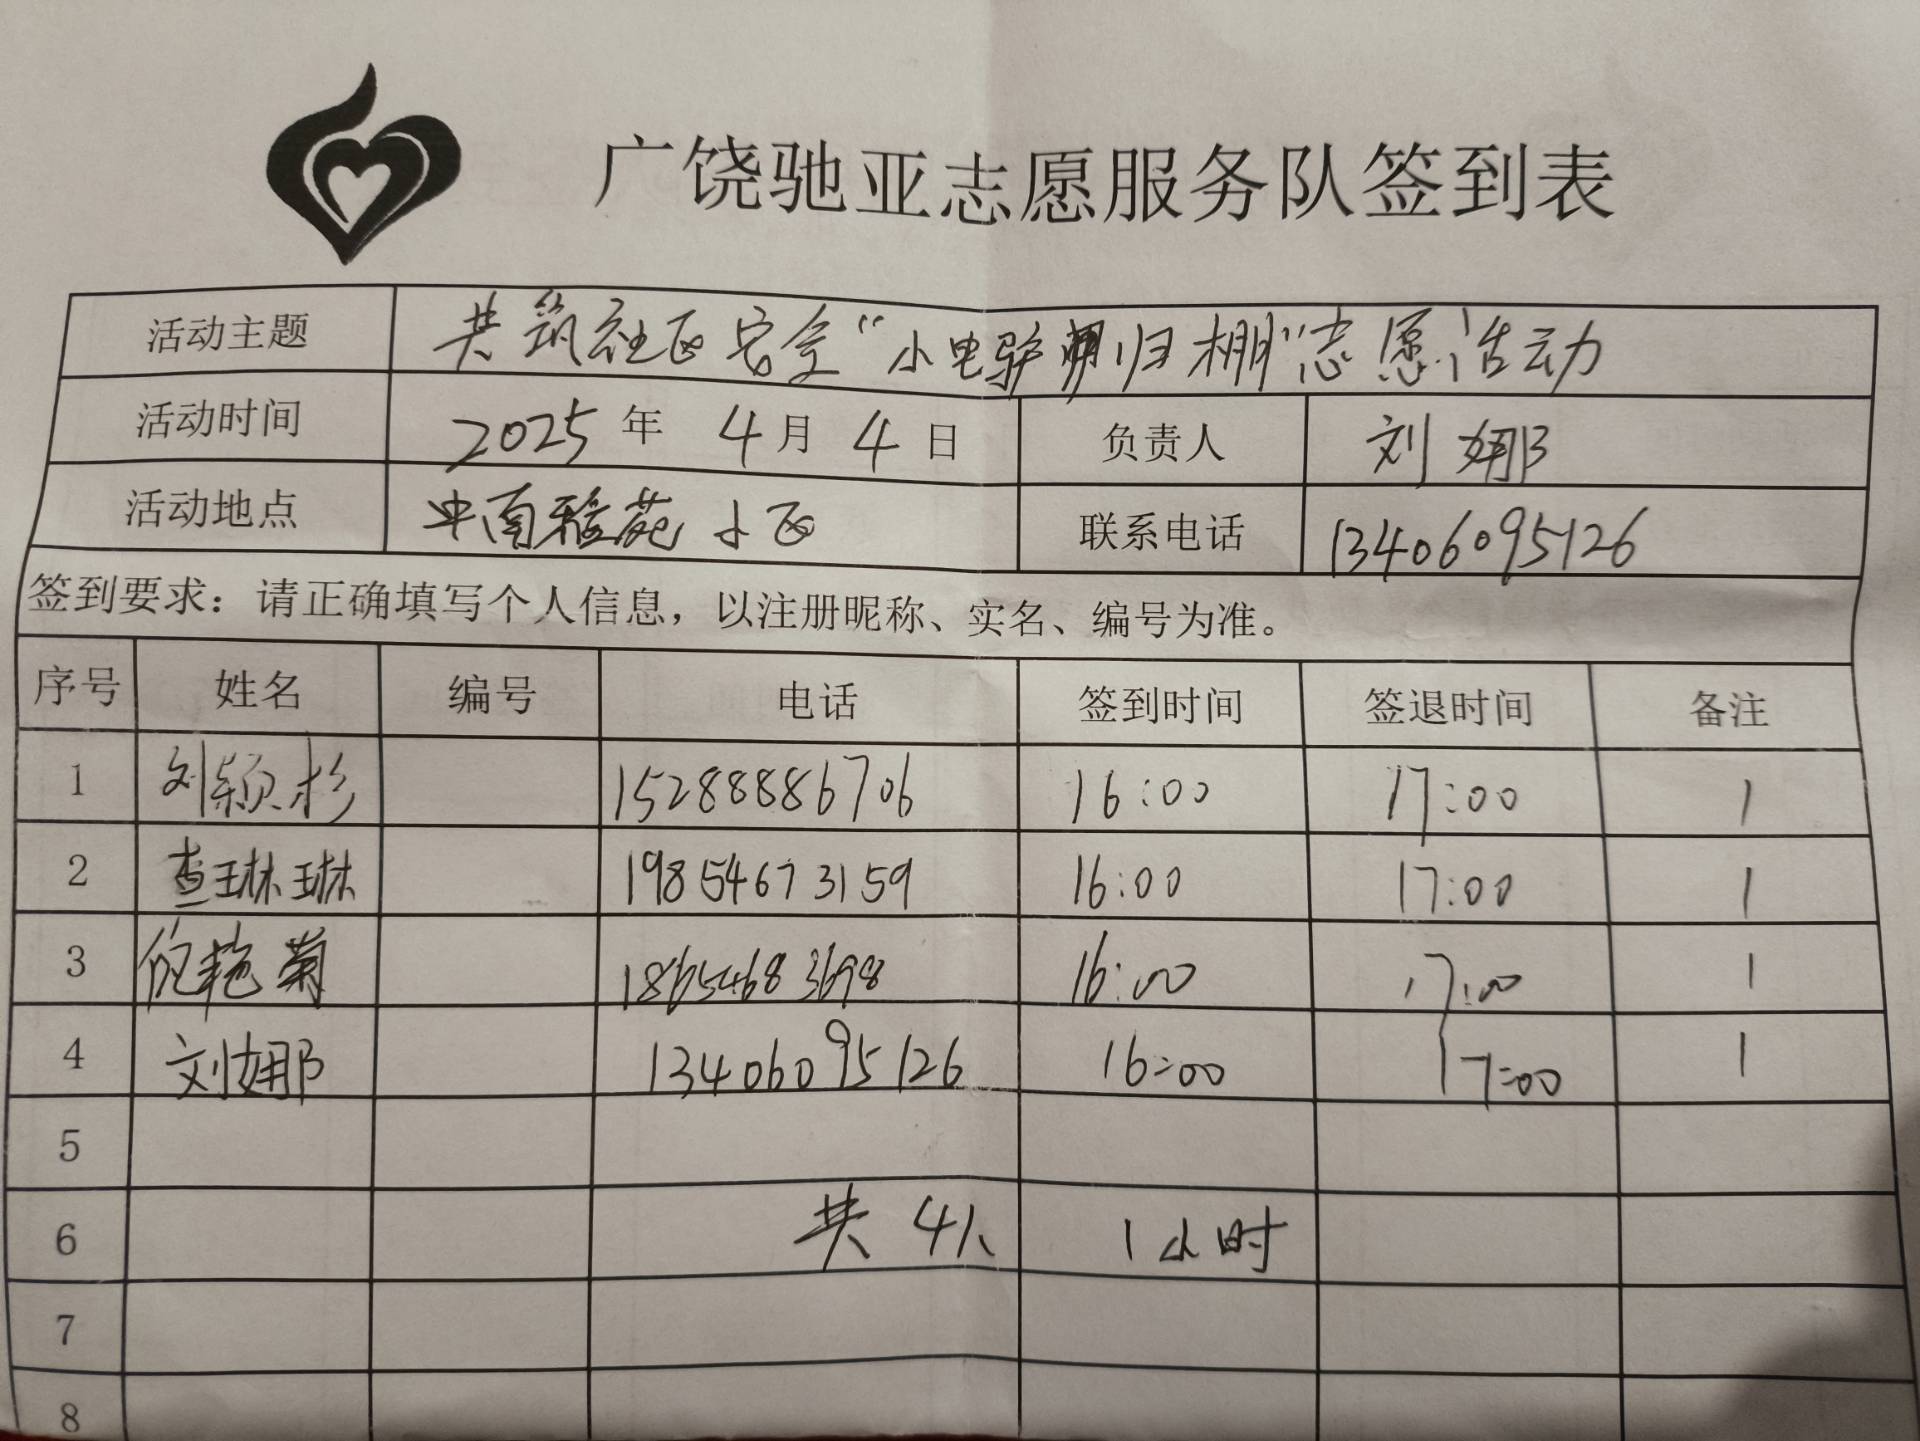 广饶驰亚志愿服务队签到表
活动主题 共筑社区安全“小电驴归棚”志愿活动
活动时间 2025年 4月 4日 负责人 刘娜
活动地点 中南雅苑小区 联系电话 13406095126
签到要求：请正确填写个人信息，以注册昵称、实名、编号为准。
序号 姓名 编号 电话 签到时间 签退时间 备注
1 刘颖杉 15288886706 16:00 17:00 1
2 查琳琳 19854673159 16:00 17:00 1
3 艳菊 18654683698 16:00 17:00 1
4 刘娜 13406095126 16:00 17:00 1
5
6 共4人 1小时
7
8